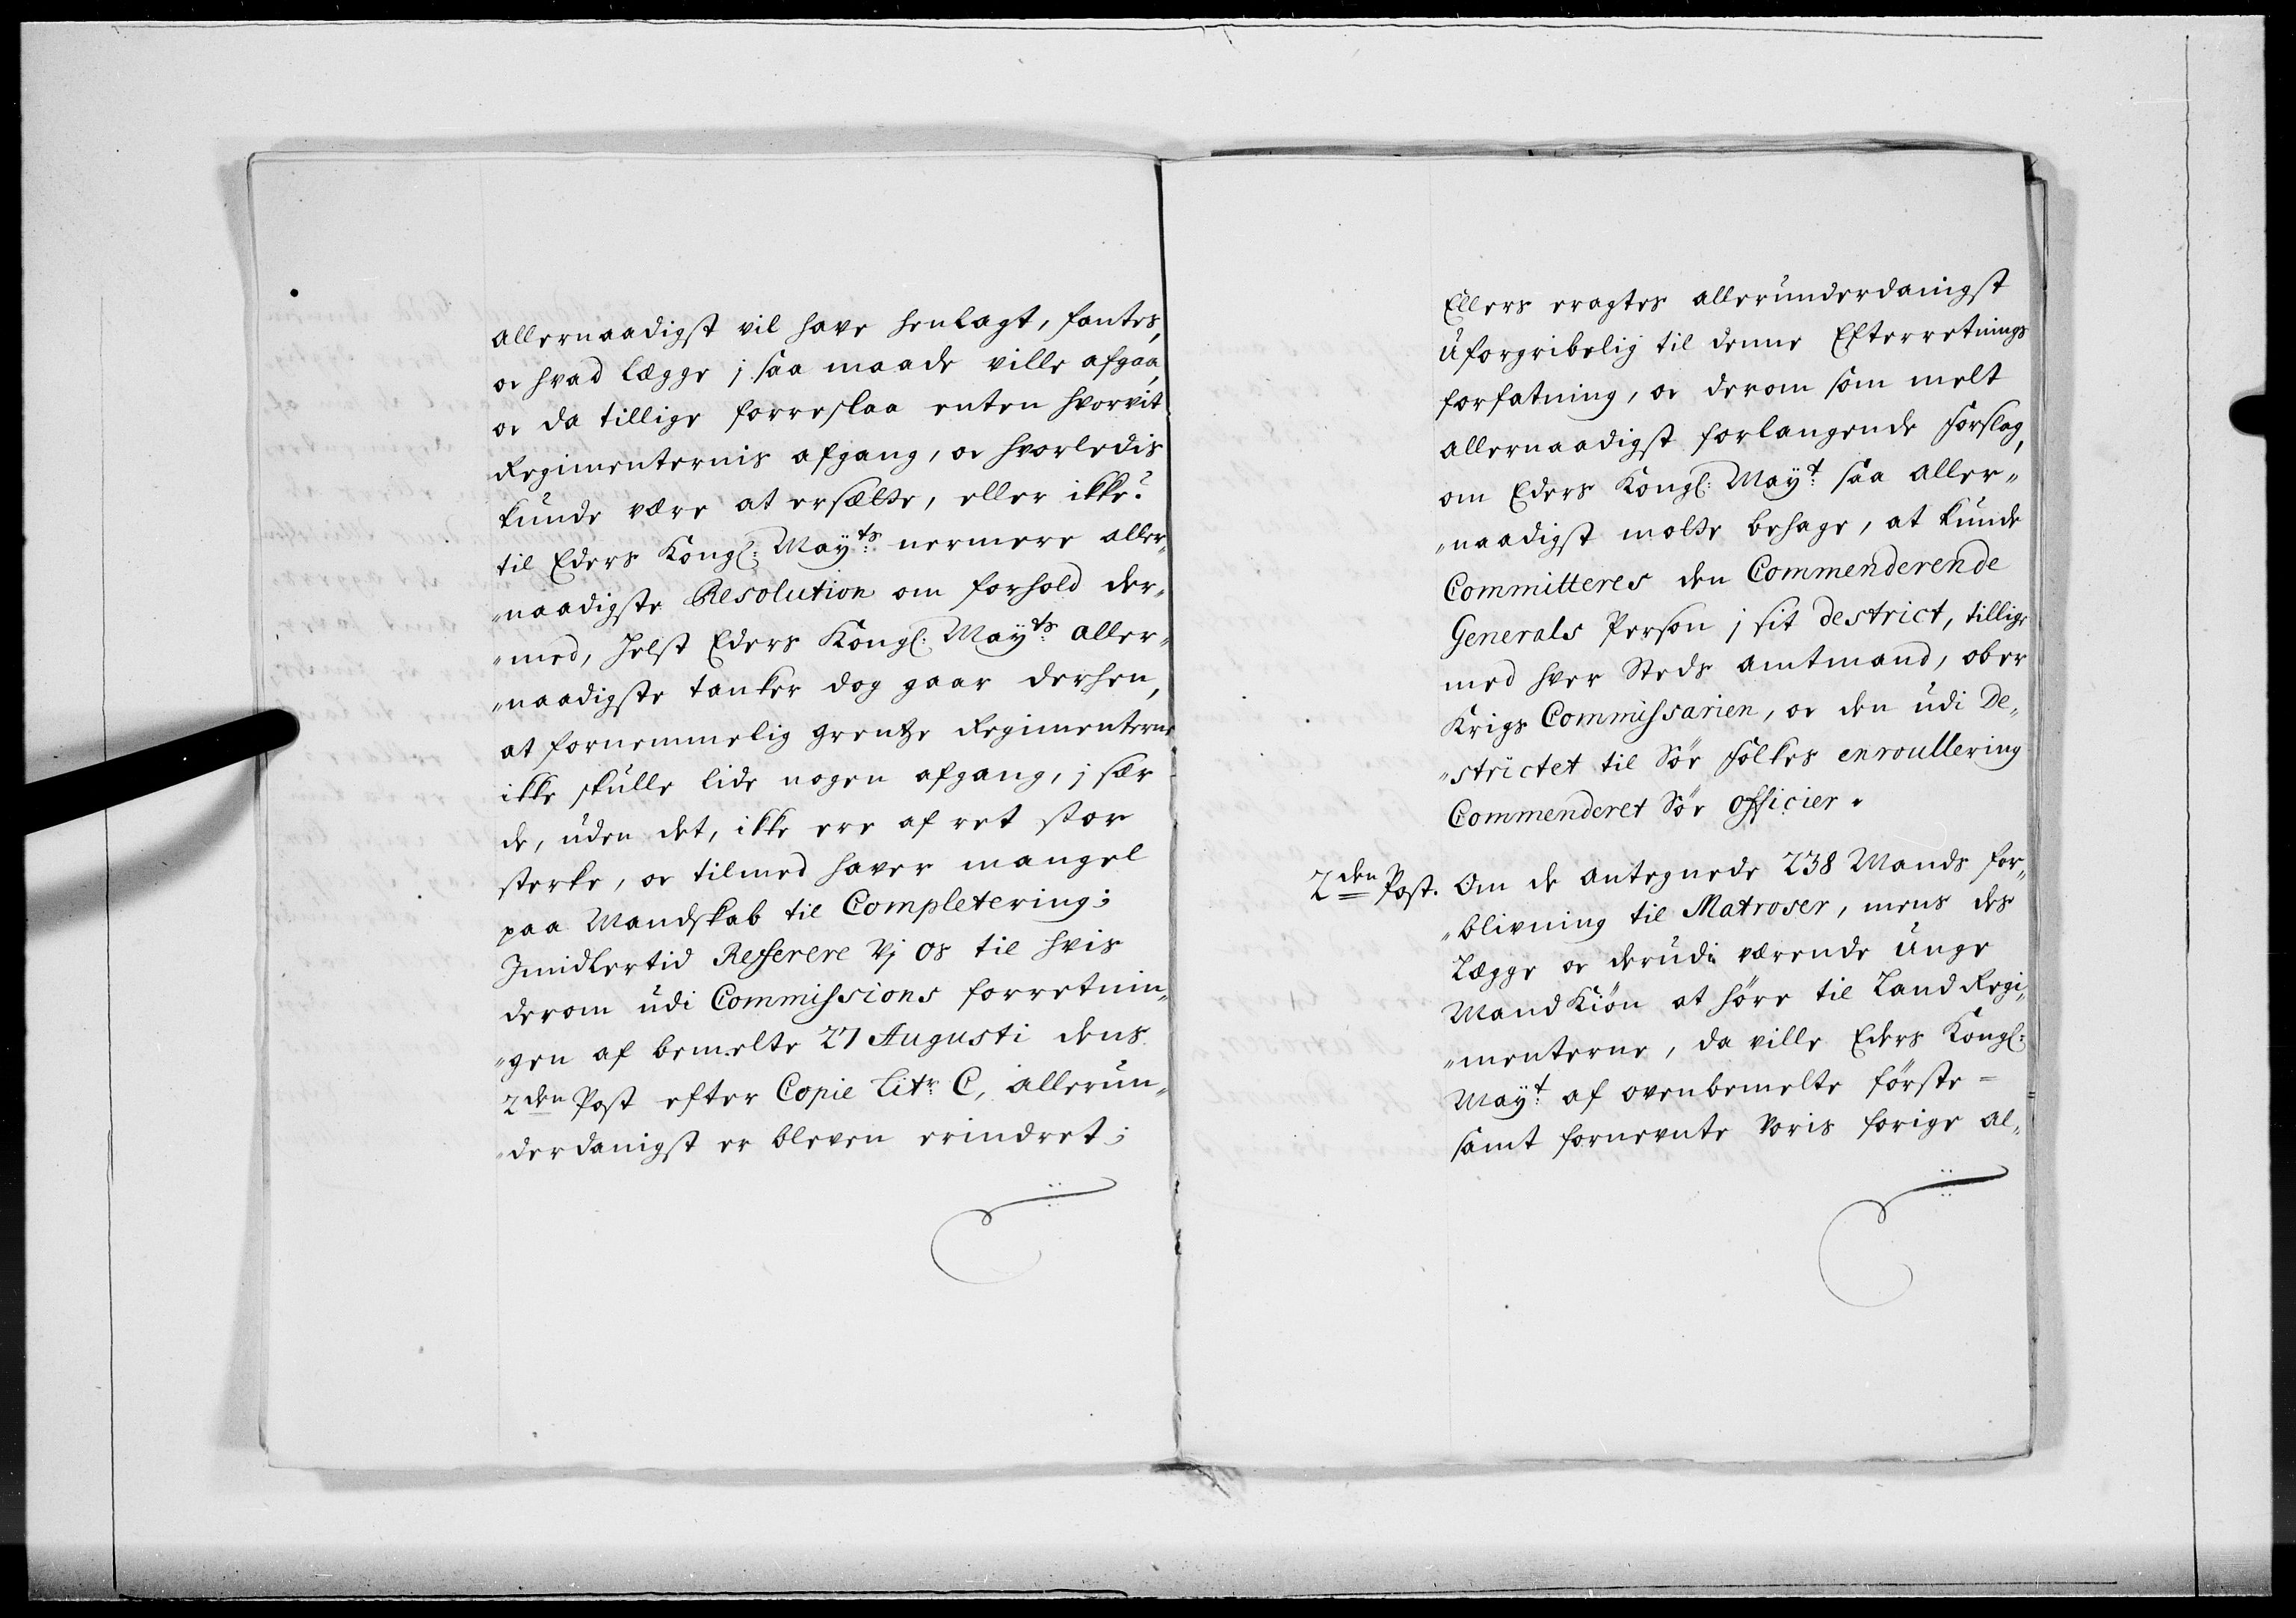 allernaadigst vil have henlagt, fantes,
oc hvad Lægge j saa maade ville afgaa,
oc da tillige forreslaa enten hvorvit
Regimenternis afgang, oc hvorledis
kunde være at ersætte, eller ikke?
til Eders Kongl: Mayts: nermere aller„
„naadigste Resolution om forhold der„
„med, Helst Eders Kongl: Mayts: aller„
„naadigste tanker dog gaar derhen,
at fornemmelig grentze Regimenterne
ikke skulle lide nogen afgang, j sær
de, uden det, ikke ere af ret stor
sterke, oc tilmed haver mangel
paa Mandskab til Completering;
Jmidlertid Refferere Vj os til hvis
derom udi Commissions forretnin„
„gen af bemelte 27 Augusti dens
2den Post efter Copie Litr: C, allerun„
„derdanigst er bleven erindret;
Ellers eragtes allerunderdanigst
uforgribelig til denne Efterretnings
forfatning, oc derom som melt
allernaadigst forlangende Forslag,
om Eders Kongl: Mayt: saa aller„
„naadigst motte behage, at kunde
Committeres den Commenderende
Generals Person j sit destrict, tillige
med hver Steds amtmand, ober
Krigs Commissarien, oc den udi De„
„strictet til Söe Folkes enroullering
Commenderet Söe Officier.
2den Post. Om de antegnede 238 Mands for„
„blivning til Matroser, mens des
Lægge oc derudi værende unge
Mand Kiön at höre til Land Regi„
„menterne, da ville Eders Kongl:
Mayt: af ovenbemelte förste=
samt fornevnte Voris forige al„